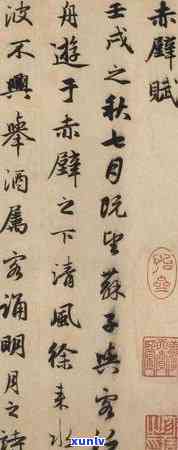 赤壁賦
壬戌之秋七月既望蘇子與客泛
舟遊于赤壁之下清風徐來水
波不興舉酒屬客誦明月之詩
xunlv